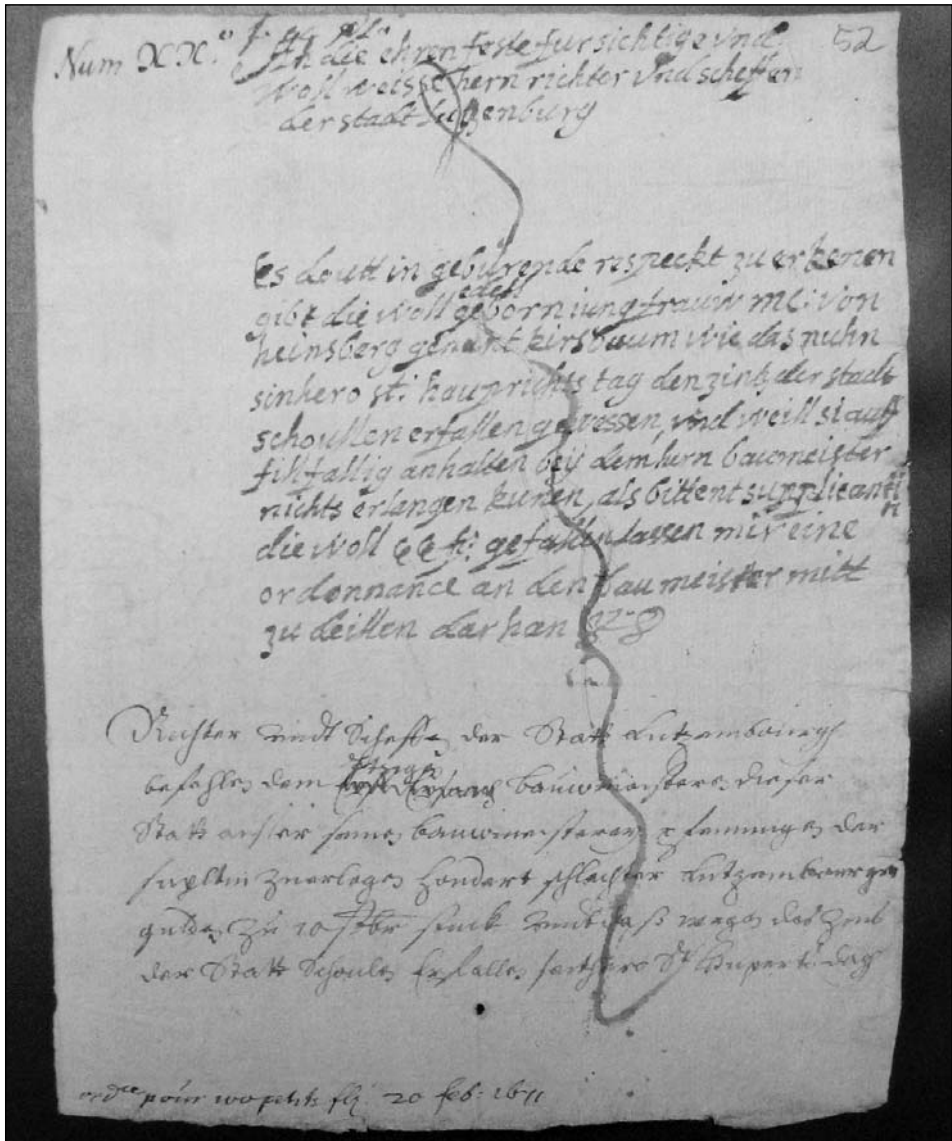 Num XX.o 52
An die ehren feste fursichtige vnd
woll weisse hern richter vnd scheffen
der stadt lutzenburg
Es doutt in gebürende respeckt zu erkenen
edell
gibt die woll geborn iungfrauw mc: von
heinsberg genant kirsbaum wie das nuhn
sinhero st: hauprichts tag den zintz der stadt
schoullen erfallen gewessen, vnd weill si auff
fillfallig anhalten beÿ dem hern baumeister
nichts erlangen kunen, als bittent supplicanti
n
die woll EE h: gefallen lassen mir eine
ordonnance an den baumeister mitt
zu deillen dar han
Richter undt Scheffen der Statt Lutzembourgh
befehlen dem bauwmeisteren dieser
Statt ausser seinen bauwmeistereÿ pfenningen der
supltin zuerlegen hondert schlechter Lutzembourger
gulden zu 10 stbr stuck undt daß wegen des Zens
der Statt Schoulen Erfallen seithero St Huperti dagh
ordce pour 100 petits fl: 20 feb: 1671